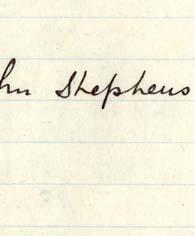 hn Stephens